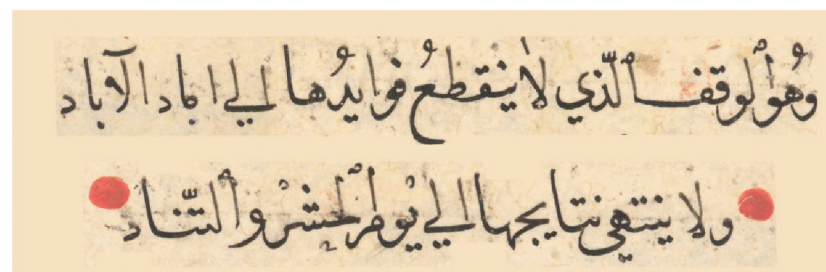 وهُو ٱلوقف ٱلّذي لا ينقطعُ فوايدُها الي اباد الآباد
ولا ينتهي نتايجها الي يوم ٱلحشرْ وٱلتّناد